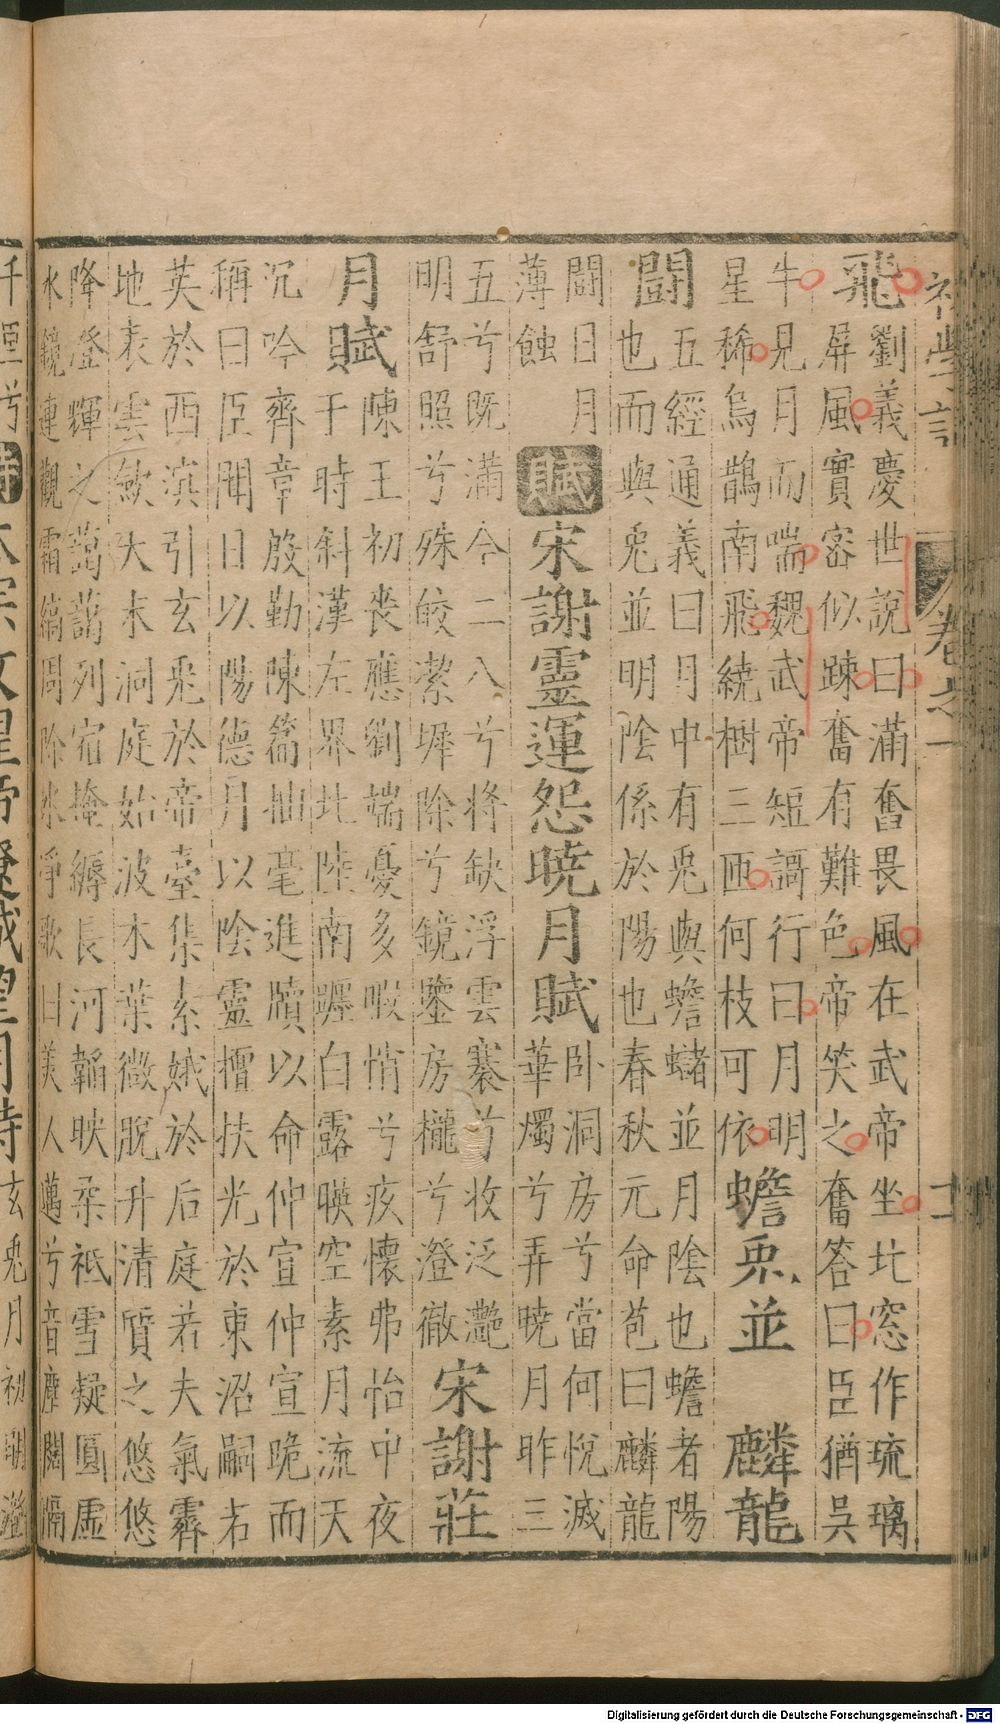 初學記 卷之一
飛
劉義慶世說曰滿奮畏風在武帝坐北窓作琉璃
屏風實密似踈奮有難色帝笑之奮答曰臣猶吳
牛見月而喘魏武帝短謌行曰月明
星稀烏鵲南飛繞樹三匝何枝可依
蟾兎並 麟龍
鬭
五經通義曰月中有兎與蟾蠩並月陰也蟾者陽
也而與兎並明陰係於陽也春秋元命苞曰麟龍
鬭日月
薄蝕
賦 宋謝靈運怨曉月賦
臥洞房兮當何悅滅
華燭兮弄曉月昨三
五兮既滿今二八兮將缺浮雲褰兮收泛灧
明舒照兮殊皎潔墀除兮鏡鑒房櫳兮澄徹
宋謝莊
月賦
陳王初喪應劉端憂多暇悄兮疚懷弗怡中夜
于時斜漢左界北陸南躔白露曖空素月流天
沉吟齊章殷勤陳篇抽毫進牘以命仲宣仲宣跪而
稱曰臣聞日以陽德月以陰靈擅扶光於東沼嗣若
英於西溟引玄兎於帝臺集素娥於后庭若夫氣霽
地表雲斂天末洞庭始波木葉微脫升清質之悠悠
降澄輝之藹藹列宿掩縟長河韜映柔祗雪凝圓虛
水鏡連觀霜縞周除冰淨歌曰美人邁兮音塵闊隔
千里兮
詩 太宗文皇帝遼城望月詩
玄兎月初明澄
Digitalisierung gefördert durch die Deutsche Forschungsgemeinschaft - DFG